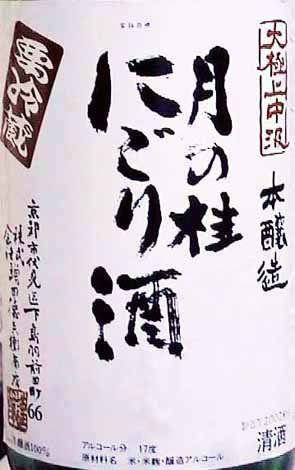 大極上中汲
本醸造
月の桂
にごり酒
要冷蔵
京都市伏見区下鳥羽前田町66
株式会社増田德兵衞商店
アルコール分 17度
原材料名 米・米麹・醸造アルコール
清酒